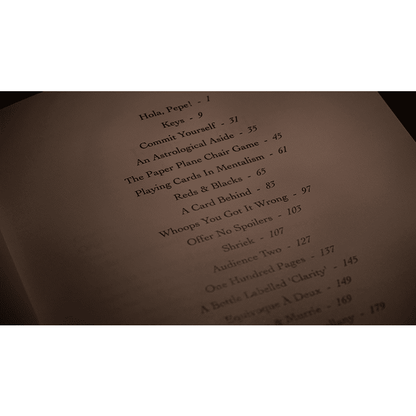 Hola, Pepe! - 1
Keys - 9
Commit Yourself - 31
An Astrological Aside - 35
The Paper Plane Chair Game - 45
Playing Cards In Mentalism - 61
Reds & Blacks - 65
A Card Behind - 83
Whoops You Got It Wrong - 97
Offer No Spoilers - 103
Shriek - 107
Audience Two - 127
One Hundred Pages - 137
A Bottle Labelled 'Clarity' - 145
Equivoque À Deux - 149
& Sherrie - 169
- 179